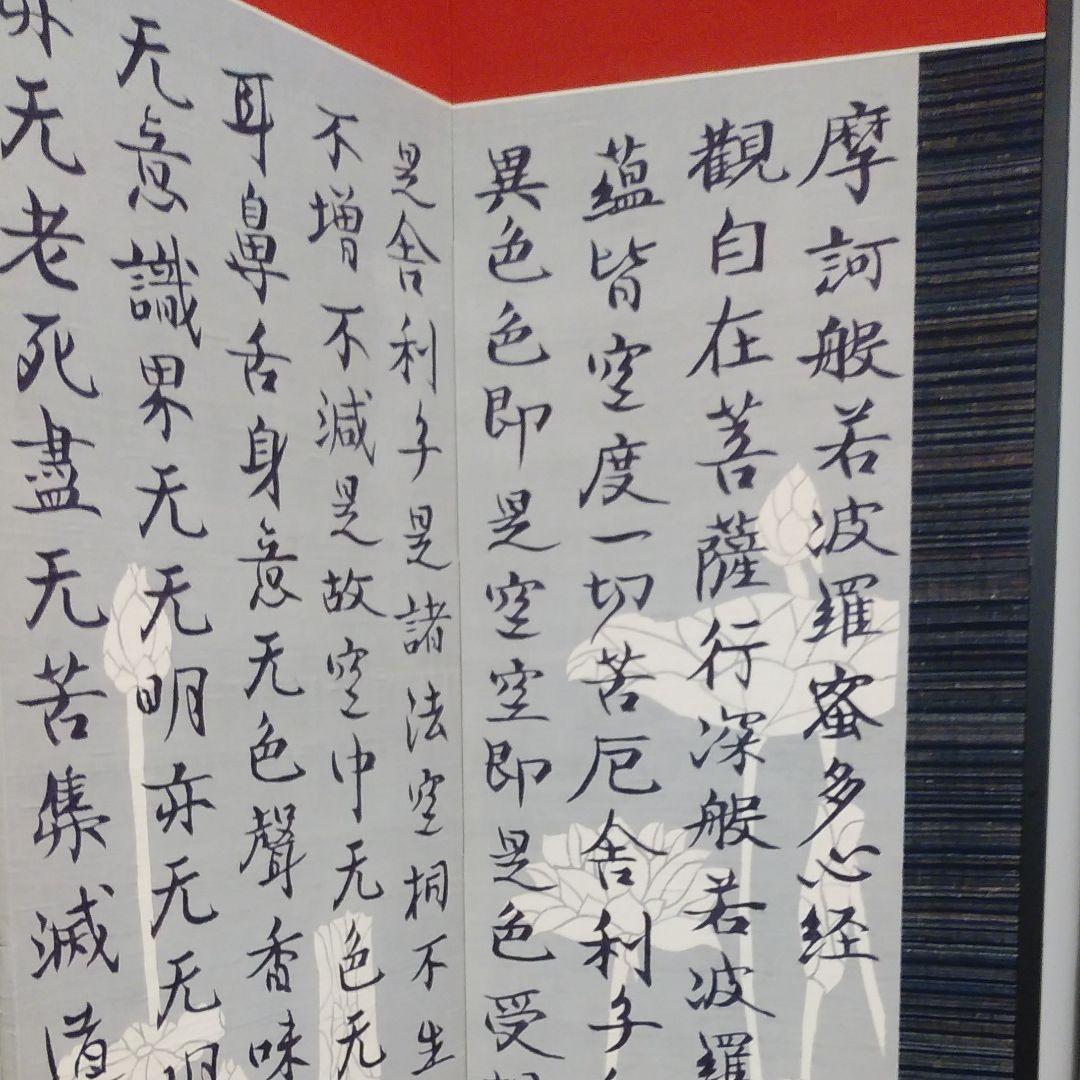 摩訶般若波羅蜜多心経
觀自在菩薩行深般若波羅
蘊皆空度一切苦厄舍利子
異色色即是空空即是色受
是舍利子是諸法空相不生
不增不減是故空中无色无
耳鼻舌身意无色聲香味
无意識界无无明亦无无明
亦无老死盡无苦集滅道